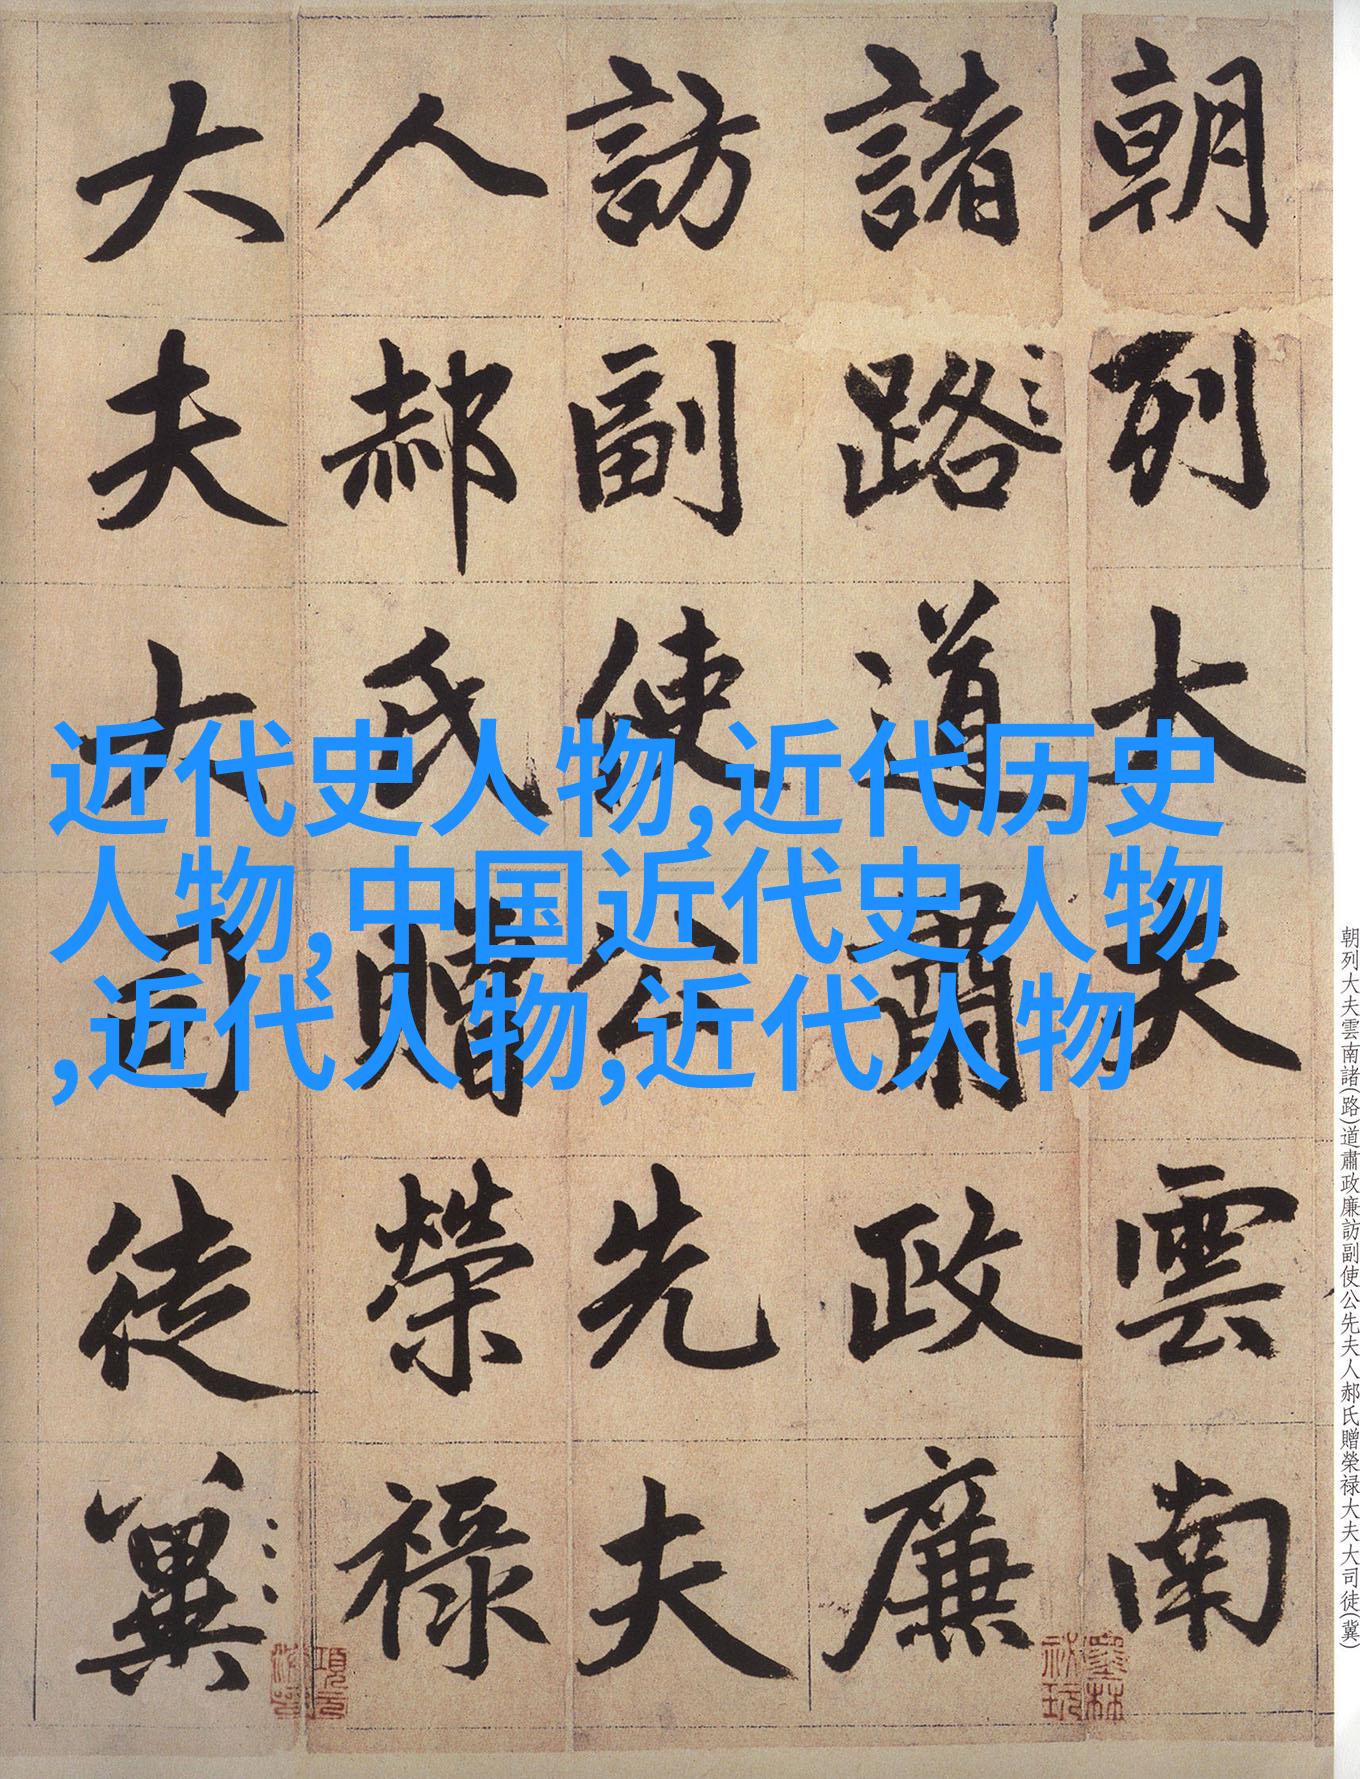 朝列大夫雲南
諸路道肅政廉
訪副使公先夫
人郝氏贈榮祿
大夫大司徒冀
近代史人物,近代历史
人物,中国近代史人物
,近代人物,近代人物
朝列大夫雲南諸(路)道肅政廉訪副使公先夫人郝氏贈榮禄大夫大司徒(冀)